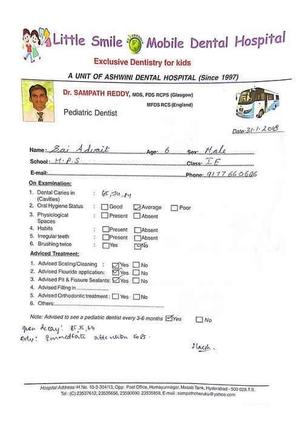 Little Smile Mobile Dental Hospital
Exclusive Dentistry for kids
A UNIT OF ASHWINI DENTAL HOSPITAL (Since 1997)
Dr. SAMPATH REDDY, MDS, FDS RCPS (Glasgow)
MFDS RCS (England)
Pediatric Dentist
Date: 31-1-2018
Name: Sai Advait Age: 6 Sex: Male
School: H.P.S Class: I E
E-mail: Phone:
On Examination:
1. Dental Caries in : 85,
(Cavities)
2. Oral Hygiene Status : Good Average Poor
3. Physiological : Present Absent
Spaces
4. Habits : Present Absent
5. Irregular teeth : Present Absent
6. Brushing twice : Yes No
Adviced Treatment:
1. Adviced Scaling/Cleaning : Yes No
2. Adviced Flouride application: Yes No
3. Adviced Pit & Fissure Sealants: Yes No
4. Adviced Filling in
5. Adviced Orthodontic treatment : Yes No
6. Any Other
Note: Advised to see a pediatric dentist every 3-6 months Yes No
decay:
Immediate attention
Hospital Address: H.No. 10-3-304/13, Opp. Post Office, Humayunnagar, Masab Tank, Hyderabad - 500 028.T.S.
Tel: (C) 23537612, 23535656, 23590690, 23535858, E-mail: sampathcheruku@yahoo.com